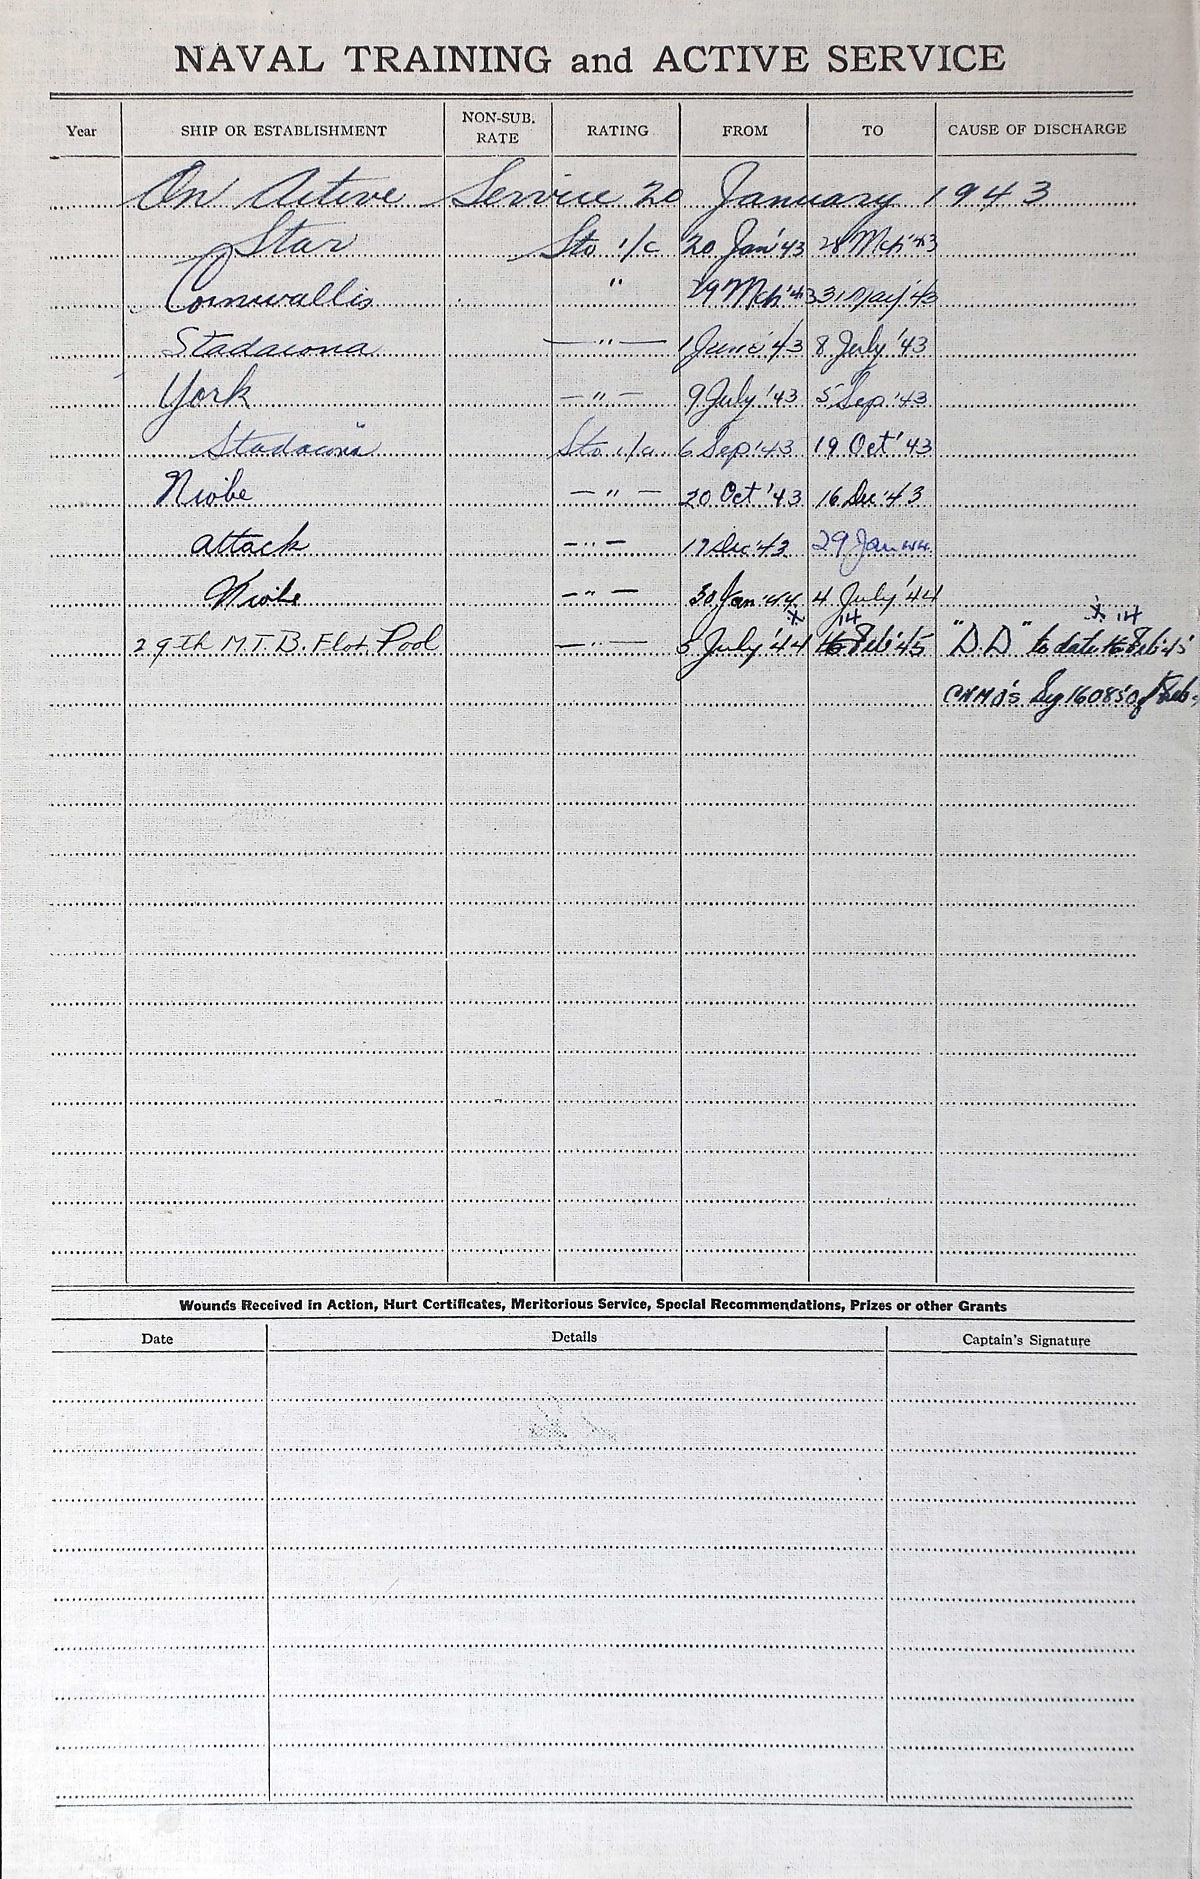 NAVAL TRAINING and ACTIVE SERVICE
Year SHIP OR ESTABLISHMENT NON-SUB. RATE RATING FROM TO CAUSE OF DISCHARGE
On Active Service 20 January 1943
Star Sto 1/c 20 Jan '43 28 Mch '43
Cornwallis " 29 Mch '43 31 May '43
Stadacona — " — 1 June '43 8 July '43
York — " — 9 July '43 5 Sep '43
Stadacona Sto 1/c 6 Sep '43 19 Oct '43
Niobe — " — 20 Oct '43 16 Dec '43
Attack — " — 17 Dec '43 29 Jan 44
Niobe — " — 30 Jan '44 4 July '44
x 14 x 14
29th M.T.B. Flot. Pool — " — 5 July '44 16 Feb '45 "D.D" to date 16 Feb '45
CNMO's Sig 160850 Feb
Wounds Received in Action, Hurt Certificates, Meritorious Service, Special Recommendations, Prizes or other Grants
Date Details Captain's Signature